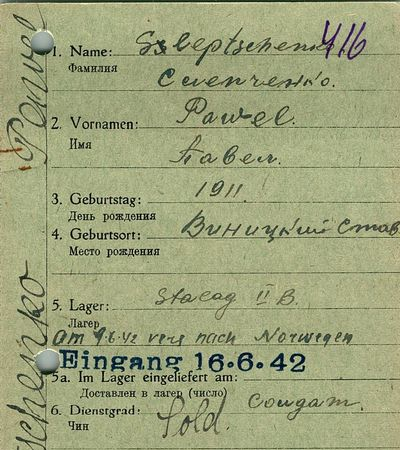 416
1. Name:
Фамилия
2. Vornamen: Pawel.
Имя
Павел.
3. Geburtstag: 1911.
День рождения
4. Geburtsort: Виницкий
Место рождения
5. Lager: Stalag II B.
Лагер
am 9.6.42 vers nach Norwegen
Eingang 16.6.42
5a. Im Lager eingeliefert am:
Доставлен в лагер (число)
6. Dienstgrad: Sold. Солдат.
Чин
Pawel